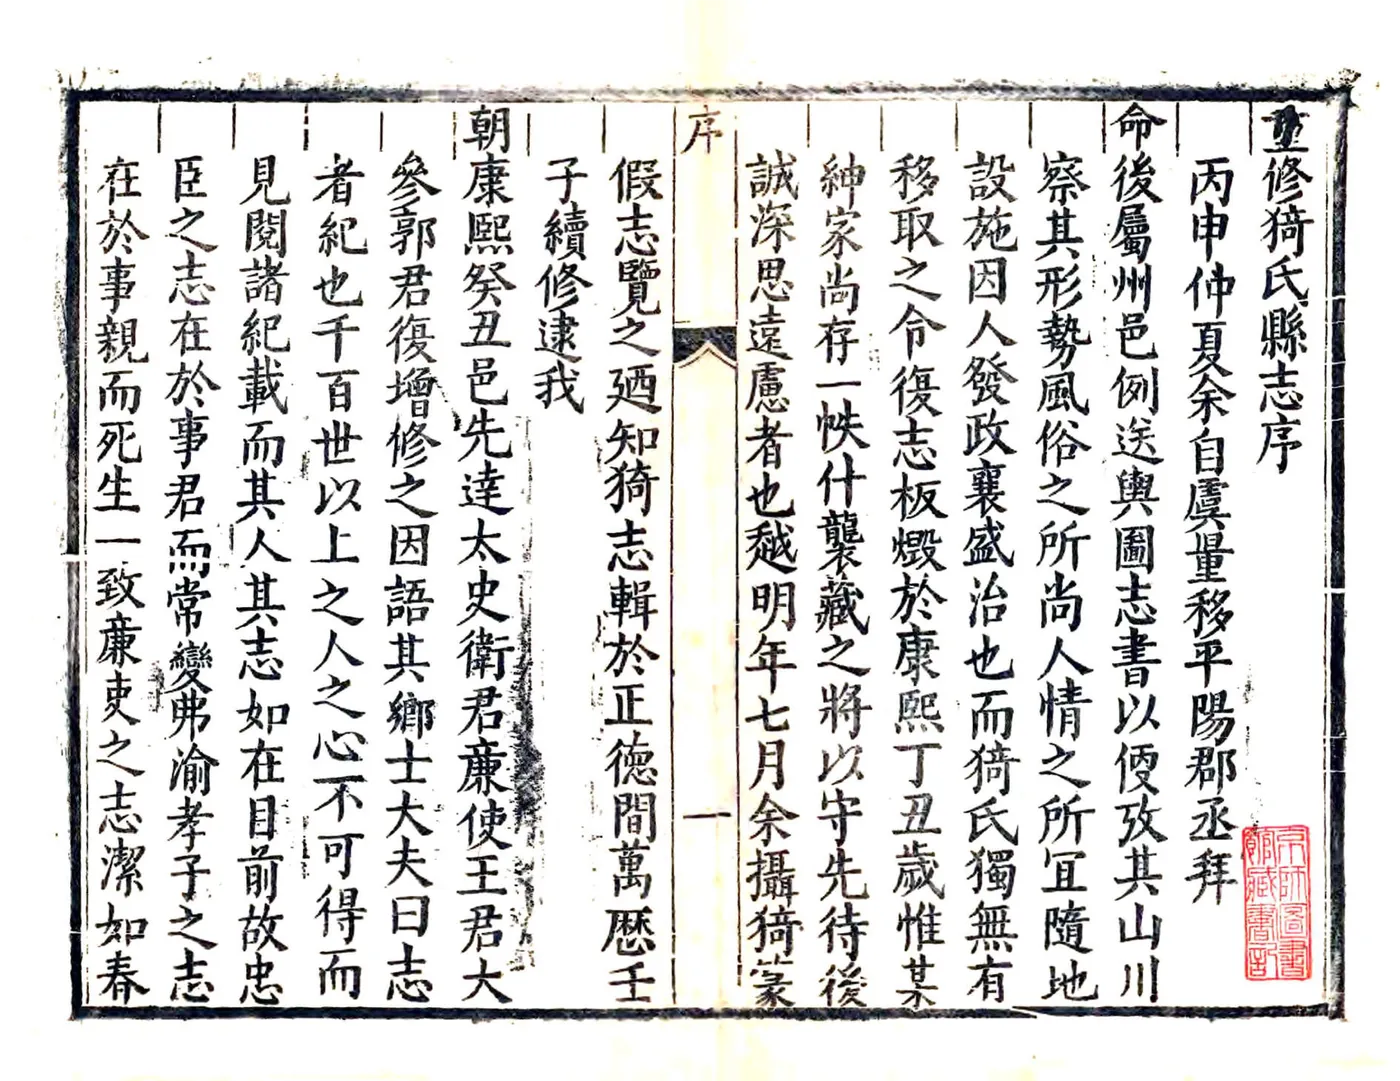 重修猗氏縣志序
丙申仲夏余自虞量移平陽郡丞拜
命後屬州邑例送輿圖志書以便攷其山川
察其形勢風俗之所尚人情之所宜隨地
設施因人發政襄盛治也而猗氏獨無有
移取之令復志板燬於康熙丁丑歲惟某
紳家尚存一帙什襲藏之將以守先待後
誠深思遠慮者也越明年七月余攝猗篆
序
一
假志覽之廼知猗志輯於正德間萬曆壬
子續修逮我
朝康熙癸丑邑先達太史衛君廉使王君大
參郭君復增修之因語其鄉士大夫曰志
者紀也千百世以上之人之心不可得而
見閱諸紀載而其人其志如在目前故忠
臣之志在於事君而常變弗渝孝子之志
在於事親而死生一致廉吏之志潔如春
京師圖書館藏書記